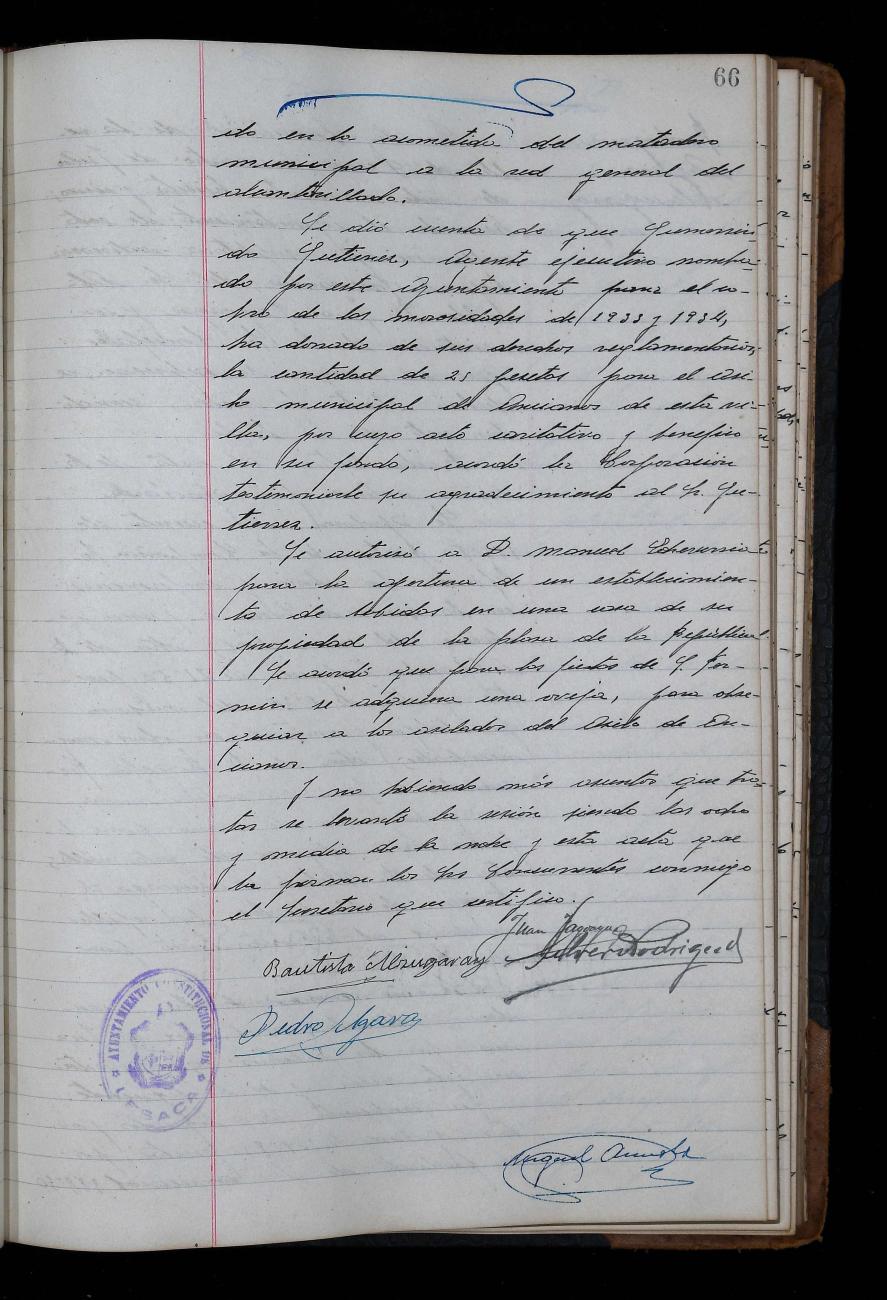 66
do en la acometida del matadero
municipal a la red general del
alcantarillado.
Se dió cuenta de que Gumersin-
do Gutierrez, Agente ejecutivo nombra-
do por este Ayuntamiento para el co-
bro de las morosidades de 1933 y 1934,
ha donado de sus derechos reglamentarios,
la cantidad de 25 pesetas para el asi-
lo municipal de Ancianos de esta vi-
lla, por cuyo acto caritativo y benefico
en su fondo, acordó la Corporación
testimoniarle su agradecimiento al Sr. Gu-
tierrez.
Se autorizó a D. Manuel
para la apertura de un establecimien-
to de bebidas en una casa de su
propiedad de la plaza de la República.
Se acordó que para las fiestas de S. Fer-
min se adquiera una oveja, para obse-
quiar a los asilados del Asilo de An-
cianos.
Y no habiendo más asuntos que tra-
tar se levantó la sesión siendo las ocho
y media de la noche y esta acta que
la firman los Srs Concurrentes conmigo
el Secretario que certifico.
Juan
Bautista Rodriguez
Pedro Ugara
Miguel
AYUNTAMIENTO CONSTITUCIONAL DE
LESACA